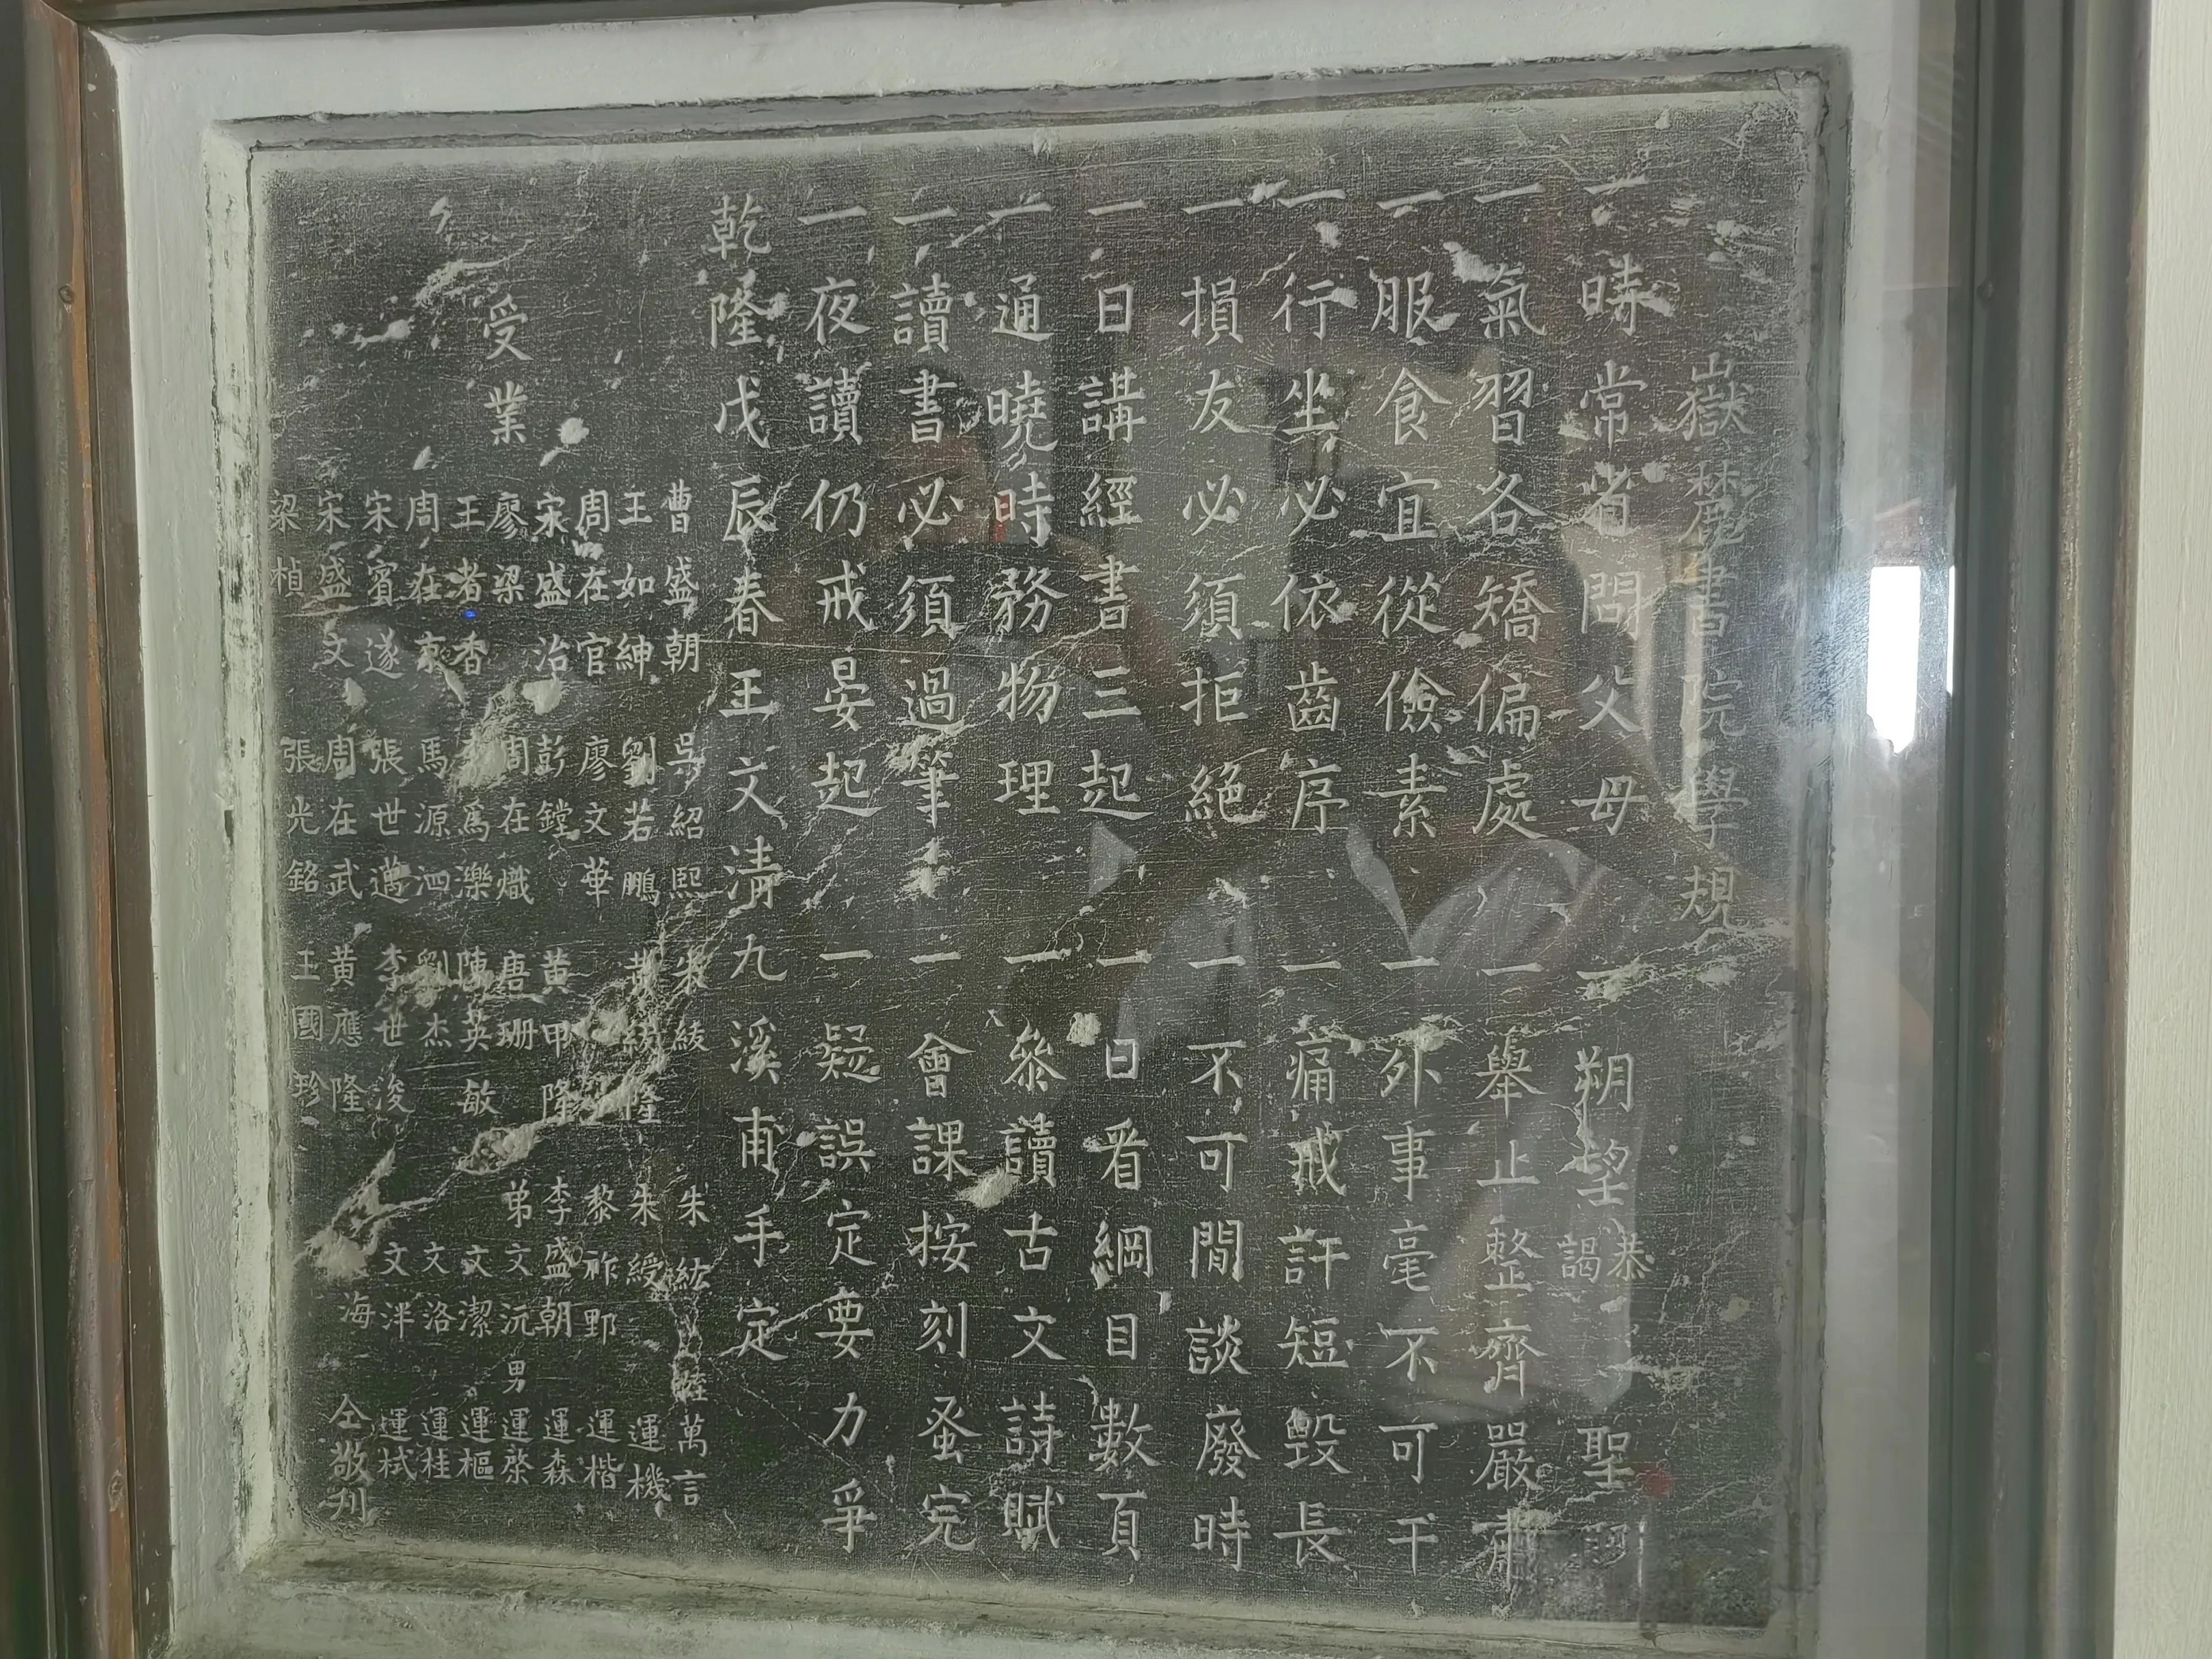 嶽麓書院學規
一時常省問父母　一朔望恭謁　聖
一氣習各矯偏處　一舉止整齊嚴肅
一服食宜從儉素　一外事毫不可干
一行坐必依齒序　一痛戒訐短毀長
一損友必須拒絕　一不可閒談廢時
一日講經書三起　一日看綱目數頁
一通曉時務物理　一參讀古文詩賦
一讀書必須過筆　一會課按刻蚤完
一夜讀仍戒晏起　一疑誤定要力爭
乾隆戊辰春王文清九溪甫手定
曹盛朝　吳紹熙　朱綾　朱紘　萬言
王如紳　劉若鵬　黃　隆　朱綬　運機
周在官　廖文華　黎祚野　運楷
宋盛治　彭鏜　黃甲隆　李盛朝　運森
受業　廖梁　周在熾　唐珊　弟文沅　男運棨
王者香　為濼　陳英敏　文潔　運樞
周在　馬源泗　劉杰　文洛　運桂
宋賓遂　張世邁　李世浚　文泮　運栻
宋盛文　周在武　黃應隆　海　仝敬刋
梁楨　張光銘　王國珍